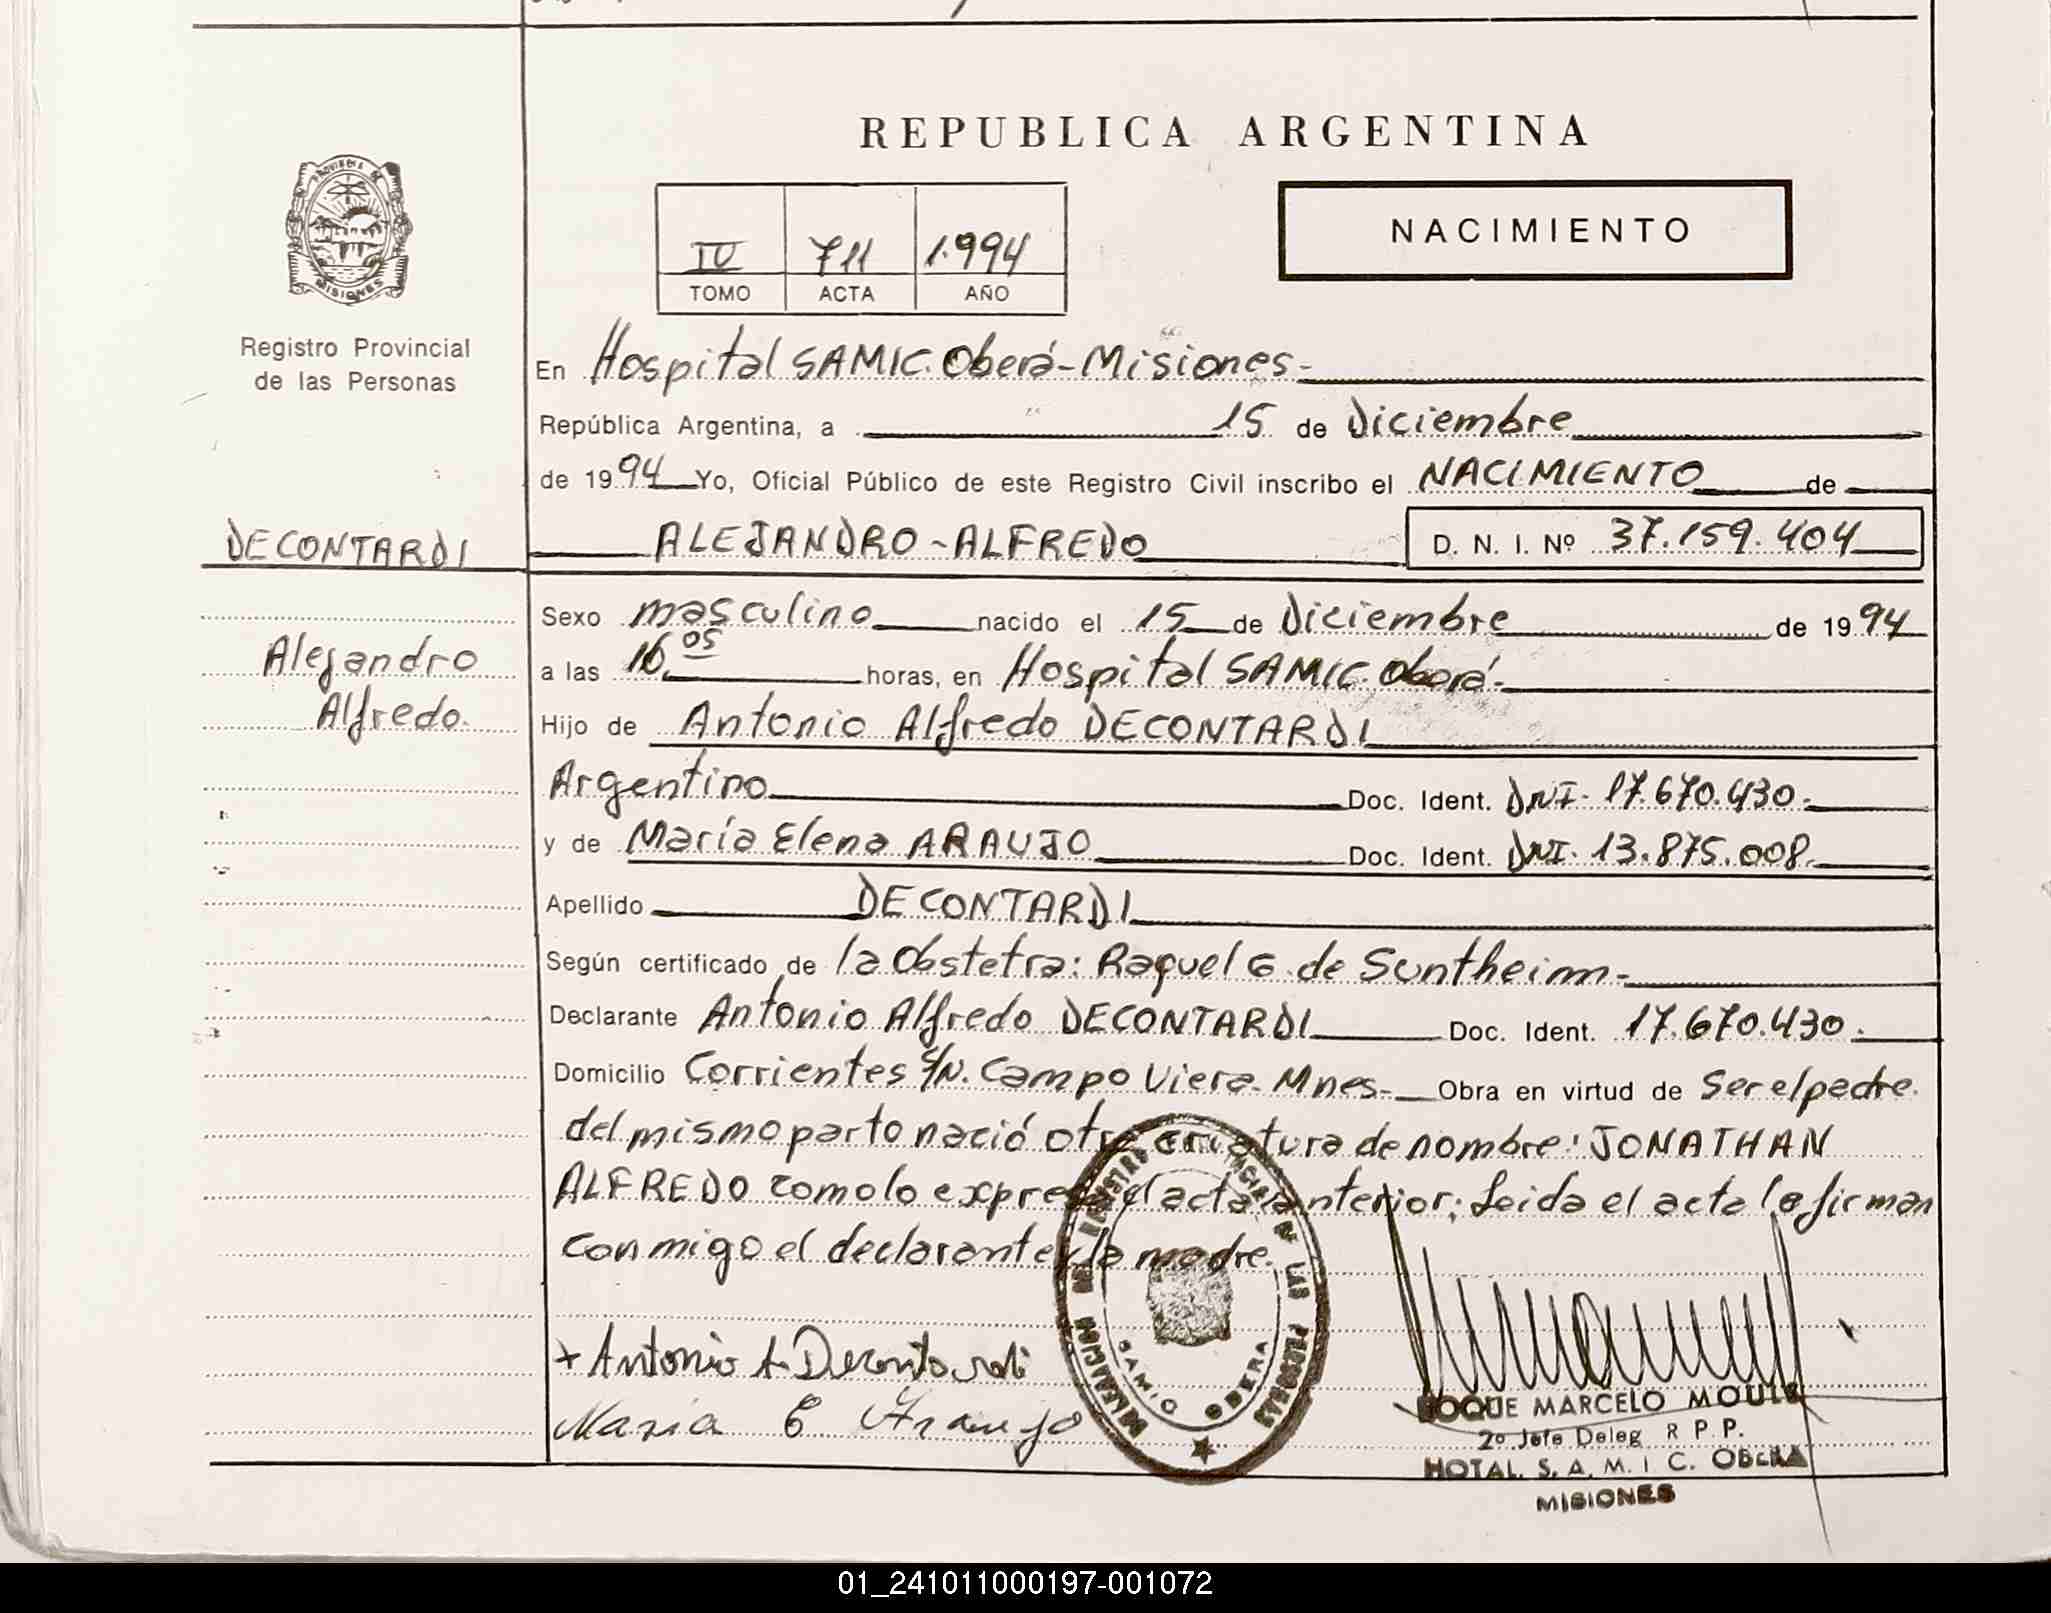 REPUBLICA ARGENTINA
PROVINCIA DE
MISIONES
IV 711 1.994
TOMO ACTA AÑO
NACIMIENTO
Registro Provincial
de las Personas
En Hospital SAMIC. Oberá-Misiones-
República Argentina, a 15 de Diciembre
de 1994 Yo, Oficial Público de este Registro Civil inscribo el NACIMIENTO de
DECONTARDI ALEJANDRO-ALFREDO D. N. I. Nº 37.159.404
Sexo masculino nacido el 15 de Diciembre de 1994
Alejandro
a las 16.05 horas, en Hospital SAMIC. Oberá-
Alfredo.
Hijo de Antonio Alfredo DECONTARDI
Argentino Doc. Ident. DNI. 17.670.430.
y de María Elena ARAUJO Doc. Ident. DNI. 13.875.008.
Apellido DECONTARDI
Según certificado de la Obstetra: Raquel G. de Suntheim-
Declarante Antonio Alfredo DECONTARDI Doc. Ident. 17.670.430.
Domicilio Corrientes S/N. Campo Viera. Mnes- Obra en virtud de Ser el padre.
del mismo parto nació otra criatura de nombre: JONATHAN
ALFREDO como lo expresa el acta anterior; Leida el acta la firman
conmigo el declarante y la madre.
+ Antonio A. Decontardi
Maria E Araujo
DELEGACION DEL REGISTRO PROVINCIAL DE LAS PERSONAS
SAMIC OBERA
ROQUE MARCELO
2º Jefe Deleg R P P.
HOTAL. S. A. M. I C. OBERA
MISIONES
01_241011000197-001072